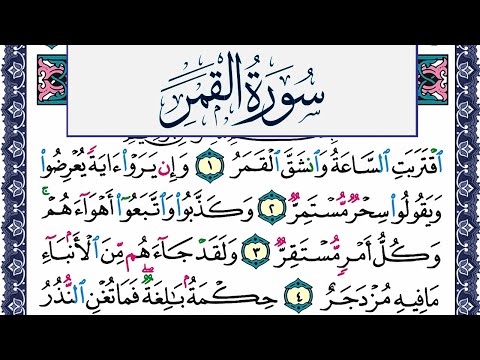 سُورَةُ القَمَرِ
ٱقْتَرَبَتِ ٱلسَّاعَةُ وَٱنشَقَّ ٱلْقَمَرُ ١ وَإِن يَرَوْا۟ ءَايَةً يُعْرِضُوا۟
وَيَقُولُوا۟ سِحْرٌ مُّسْتَمِرٌّ ٢ وَكَذَّبُوا۟ وَٱتَّبَعُوٓا۟ أَهْوَآءَهُمْ ۚ
وَكُلُّ أَمْرٍ مُّسْتَقِرٌّ ٣ وَلَقَدْ جَآءَهُم مِّنَ ٱلْأَنۢبَآءِ
مَا فِيهِ مُزْدَجَرٌ ٤ حِكْمَةٌۢ بَٰلِغَةٌ ۖ فَمَا تُغْنِ ٱلنُّذُرُ